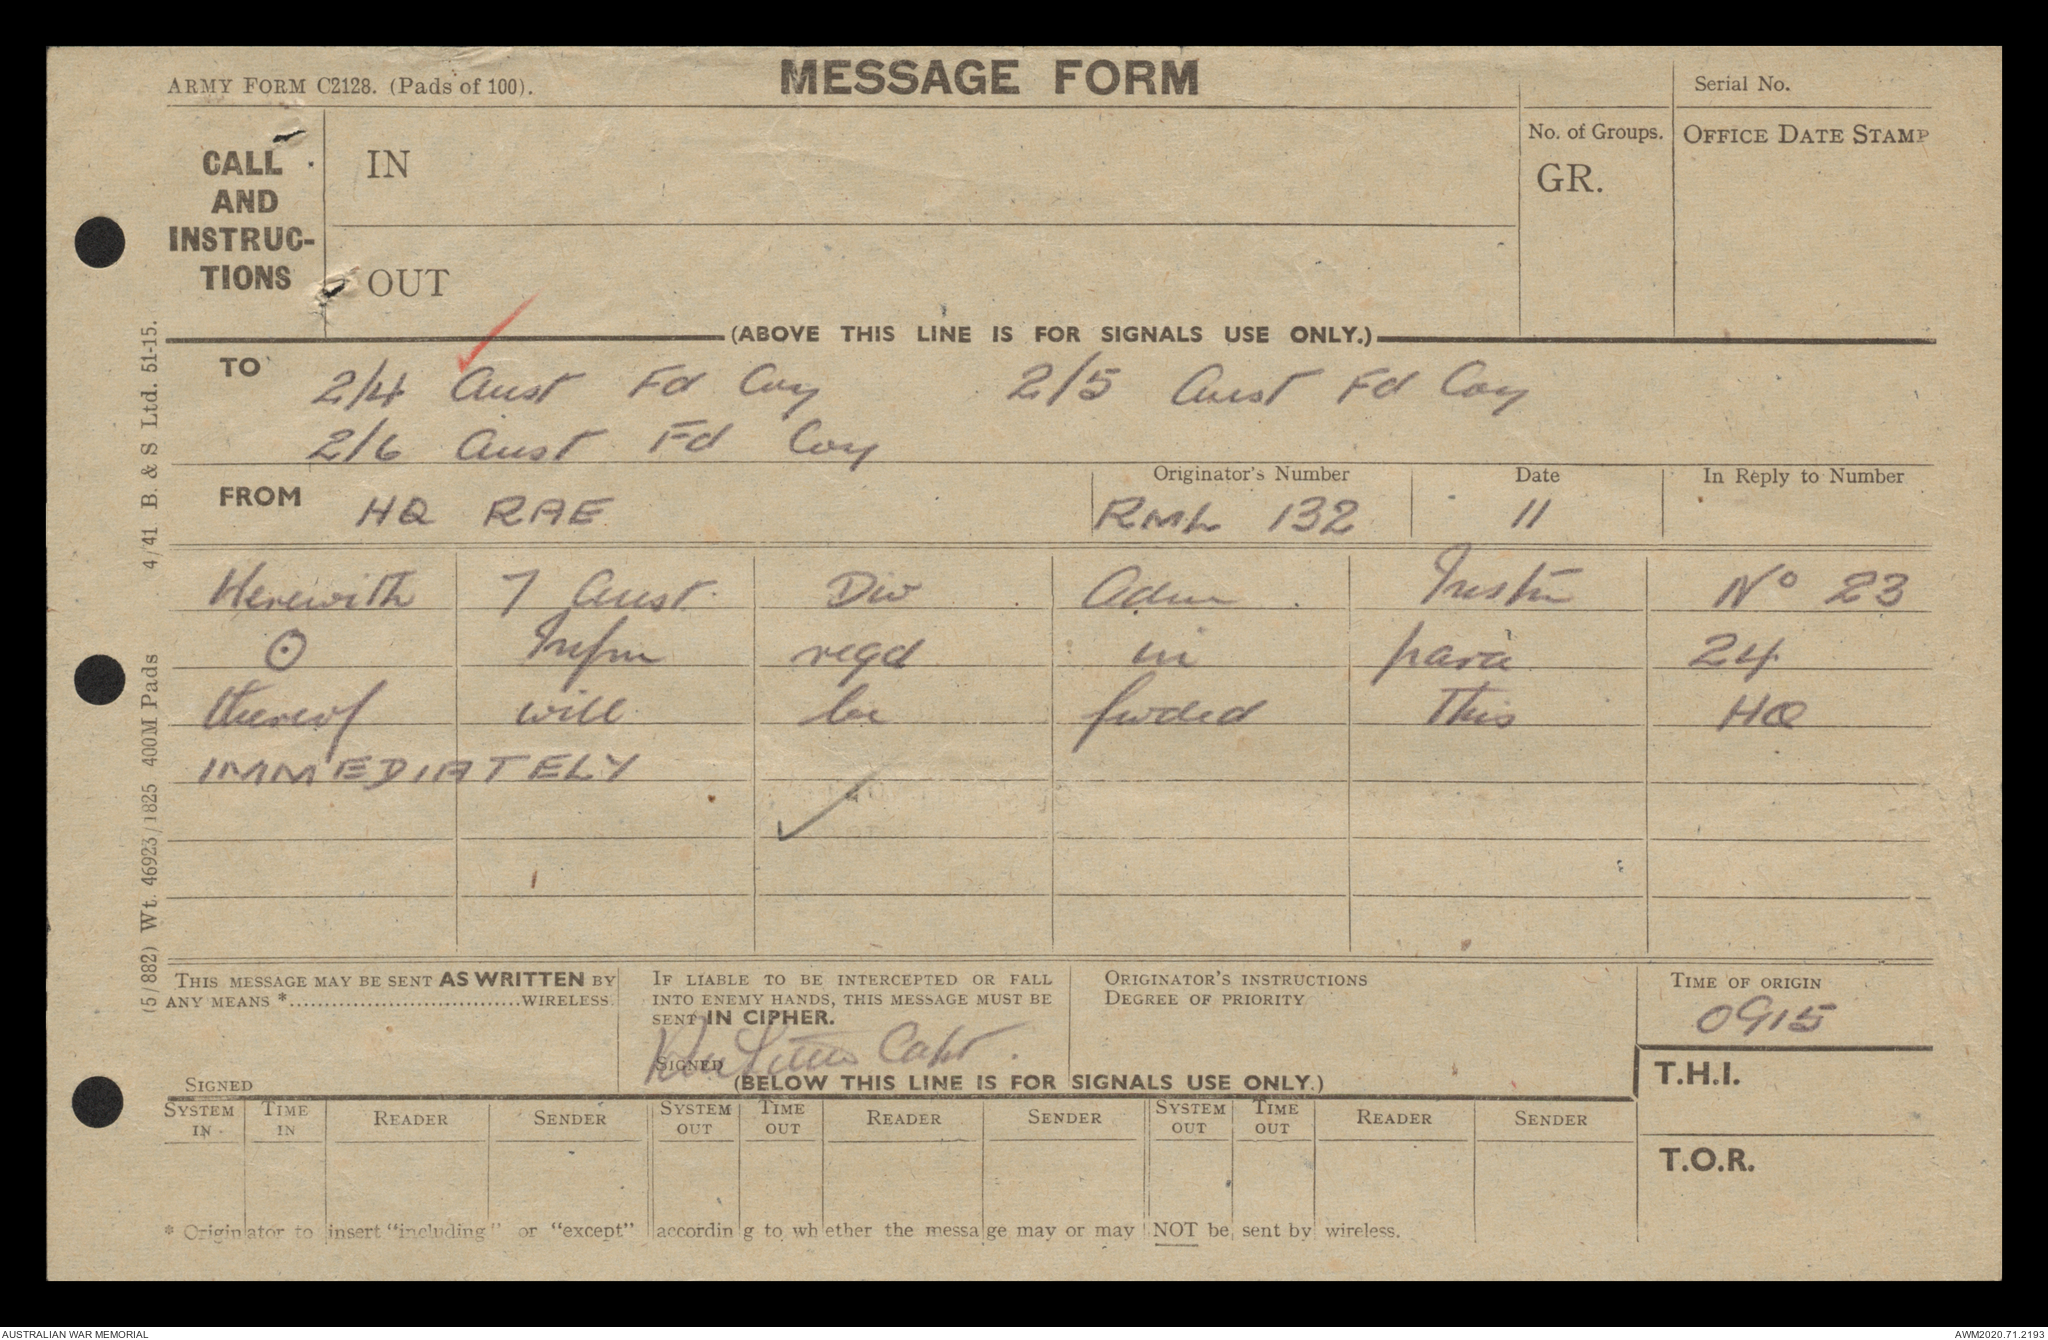 ARMY FORM C2128. (Pads of 100).
MESSAGE FORM
Serial No.
CALL AND INSTRUC-TIONS
IN
OUT
No. of Groups.
GR.
OFFICE DATE STAMP
(ABOVE THIS LINE IS FOR SIGNALS USE ONLY.)
TO
2/4 Aust Fd Coy 2/5 Aust Fd Coy
2/6 Aust Fd Coy
FROM HQ RAE
Originator's Number RML 132
Date 11
In Reply to Number
Herewith 7 Aust. Div Adm Instn No 23
⊙ Infm reqd in para 24
thereof will be fwded this HQ
IMMEDIATELY
THIS MESSAGE MAY BE SENT AS WRITTEN BY
ANY MEANS *..................................WIRELESS.
SIGNED
IF LIABLE TO BE INTERCEPTED OR FALL
INTO ENEMY HANDS, THIS MESSAGE MUST BE
SENT IN CIPHER.
SIGNED Capt.
ORIGINATOR'S INSTRUCTIONS
DEGREE OF PRIORITY
TIME OF ORIGIN
0915
T.H.I.
T.O.R.
(BELOW THIS LINE IS FOR SIGNALS USE ONLY.)
SYSTEM IN TIME IN READER SENDER SYSTEM OUT TIME OUT READER SENDER SYSTEM OUT TIME OUT READER SENDER
* Originator to insert "including" or "except" according to whether the message may or may NOT be sent by wireless.
(5/882) Wt. 46923/1825 400M Pads 4/41 B. & S Ltd. 51-15.
AUSTRALIAN WAR MEMORIAL
AWM2020.71.2193